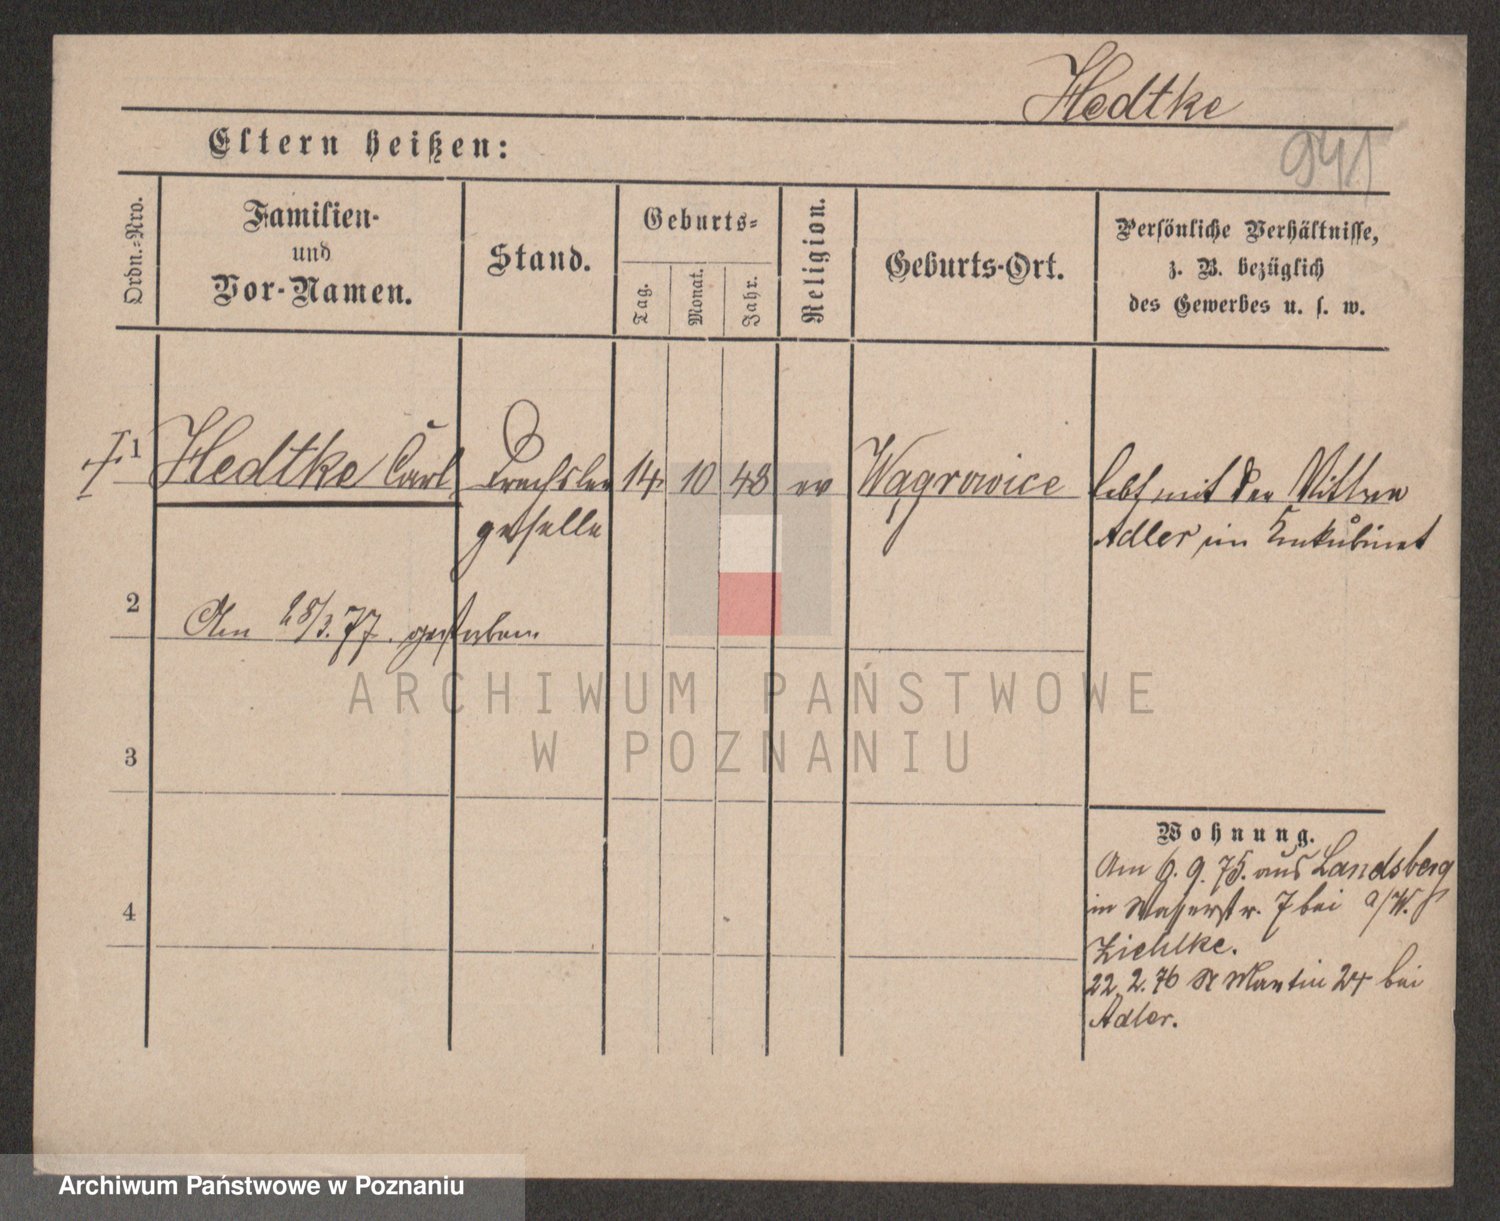 Hedtke
941
Eltern heißen:
Ordn.-Nro.
Familien-
und
Vor-Namen.
Stand.
Geburts-
Tag.
Monat.
Jahr.
Religion.
Geburts-Ort.
Persönliche Verhältnisse,
z. B. bezüglich
des Gewerbes u. s. w.
1 Hedtke Carl Drechsler 14 10 48 ev Wągrowice lebt mit der Wittwe
geselle Adler im Konkubinat
2 Am 28/3. 77. gestorben
3
4
Wohnung.
Am 9. 75. aus Landsberg
in Wasserstr. 7 bei a/W.
Ziehlke.
22. 2. 76 St Martin 24 bei
Adler.
ARCHIWUM PAŃSTWOWE
W POZNANIU
Archiwum Państwowe w Poznaniu